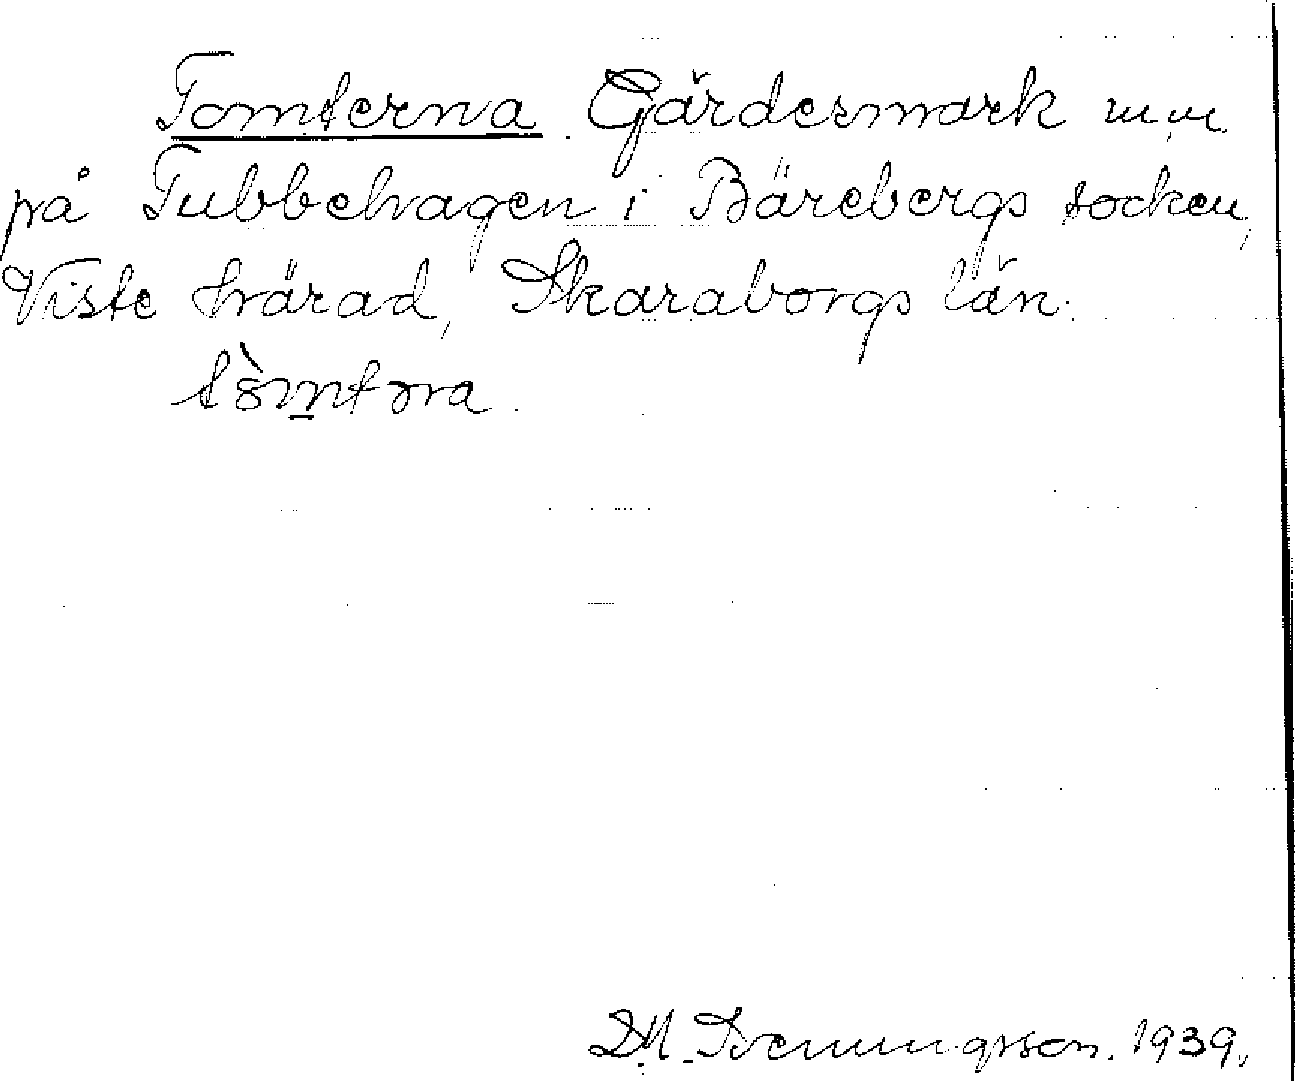 Tomterna. Gärdesmark m.m.
på Tubbehagen i Bärebergs socken,
Viste härad, Skaraborgs län.
tòmtɔra.
D.M. Svenungsson. 1939.